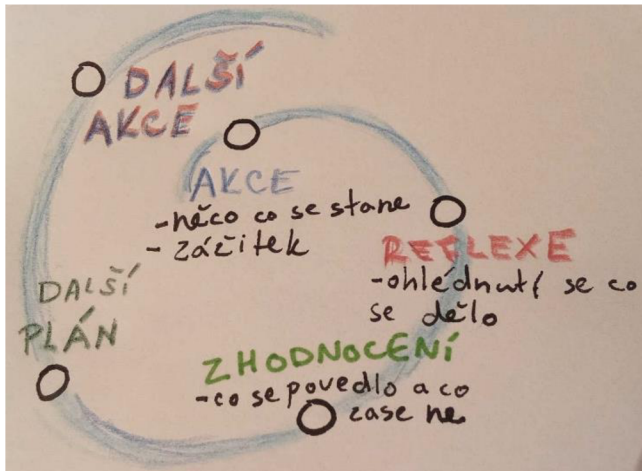 DALŠÍ
AKCE
AKCE
-něco co se stane
- zážitek
REFLEXE
-ohlédnutí se co
se dělo
ZHODNOCENÍ
-co se povedlo a co
zase ne
DALŠÍ
PLÁN